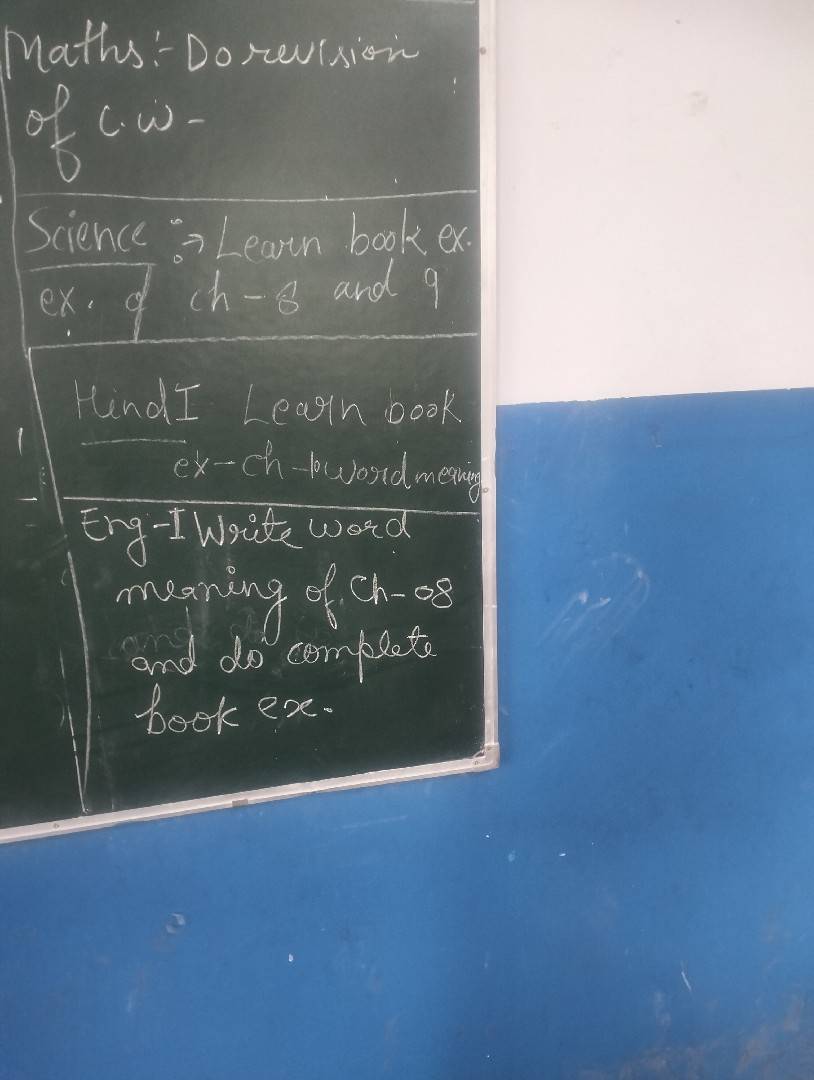 Maths:- Do revision
of C.W -
Science :→ Learn book ex.
ex. of ch-8 and 9
HindI Learn book
ex-ch- word meaning
Eng-I Write word
meaning of Ch-08
and do complete
book ex.